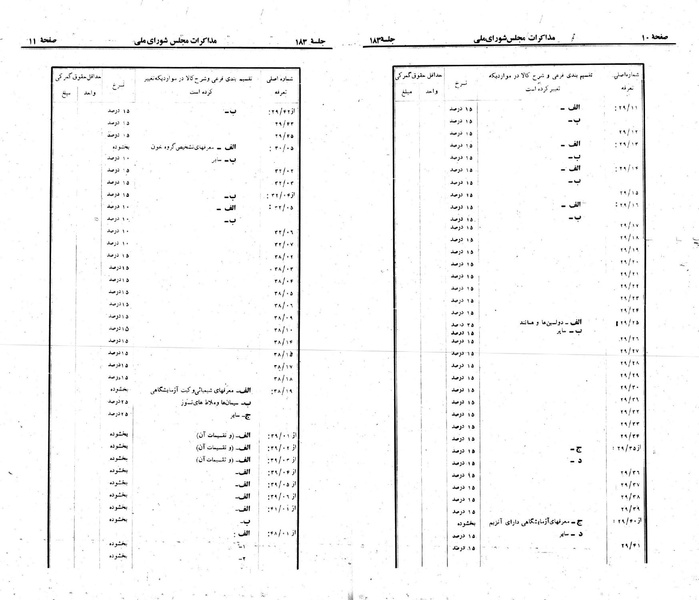 صفحهٔ ۱۰ مذاکرات مجلس شورای ملی جلسهٔ ۱۸۳
شماره اصلی تعرفه تقسیم بندی فرعی و شرح کالا در مواردیکه تغییر کرده است نرخ حداقل حقوق گمرکی
واحد مبلغ
۲۹/۱۱: الف – ۱۵ درصد
ب – ۱۵ درصد
۲۹/۱۲ ۱۵ درصد
۲۹/۱۳: الف – ۱۵ درصد
ب – ۱۵ درصد
۲۹/۱۴: الف – ۱۵ درصد
ب – ۱۵ درصد
۲۹/۱۵ ۱۵ درصد
۲۹/۱۶: الف – ۱۵ درصد
ب – ۱۵ درصد
۲۹/۱۷ ۱۵ درصد
۲۹/۱۸ ۱۵ درصد
۲۹/۱۹ ۱۵ درصد
۲۹/۲۰ ۱۵ درصد
۲۹/۲۱ ۱۵ درصد
۲۹/۲۲ ۱۵ درصد
۲۹/۲۳ ۱۵ درصد
۲۹/۲۴ ۱۵ درصد
۲۹/۲۵ الف – دولسین‌ها و همانند ۲۵ درصد
ب – سایر ۱۵ درصد
۲۹/۲۶ ۱۵ درصد
۲۹/۲۷ ۱۵ درصد
۲۹/۲۸ ۱۵ درصد
۲۹/۲۹ ۱۵ درصد
۲۹/۳۰ ۱۵ درصد
۲۹/۳۱ ۱۵ درصد
۲۹/۳۲ ۱۵ درصد
۲۹/۳۳ ۱۵ درصد
۲۹/۳۴ ۱۵ درصد
از ۲۹/۳۵: ج – ۱۵ درصد
د – ۱۵ درصد
۲۹/۳۶ ۱۵ درصد
۲۹/۳۷ ۱۵ درصد
۲۹/۳۸ ۱۵ درصد
۲۹/۳۹ ۱۵ درصد
از ۲۹/۴۰: ج – معرفهای آزمایشگاهی دارای آنزیم بخشوده
د – سایر ۱۵ درصد
۲۹/۴۱ ۱۵ درصد
جلسهٔ ۱۸۳ مذاکرات مجلس شورای ملی صفحهٔ ۱۱
شماره اصلی تعرفه تقسیم بندی فرعی و شرح کالا در مواردیکه تغییر کرده است نرخ حداقل حقوق گمرکی
واحد مبلغ
از ۲۹/۴۲: ب – ۱۵ درصد
۲۹/۴۳ ۱۵ درصد
۲۹/۴۵ ۱۵ درصد
۳۰/۰۵: الف – معرفهای تشخیص گروه خون بخشوده
ب – سایر ۱۰ درصد
۳۲/۰۲ ۱۵ درصد
۳۲/۰۳ ۱۵ درصد
از ۳۲/۰۴: ب – ۱۵ درصد
۳۲/۰۵: الف – ۱۰ درصد
ب – ۱۰ درصد
۳۲/۰۶ ۱۰ درصد
۳۲/۰۷ ۱۰ درصد
۳۸/۰۲ ۱۵ درصد
۳۸/۰۳ ۱۵درصد
۳۸/۰۴ ۱۵درصد
۳۸/۰۵ ۱۵درصد
۳۸/۰۶ ۱۵درصد
۳۸/۰۹ ۱۵درصد
۳۸/۱۰ ۱۵درصد
۳۸/۱۴ ۱۵درصد
۳۸/۱۵ ۱۵درصد
۳۸/۱۷ ۱۵درصد
۳۸/۱۸ ۱۵درصد
۳۸/۱۹: الف – معرفهای شیمیائی و کیت آزمایشگاهی بخشوده
ب – سیمان‌ها و ملاط های نسوز ۲۵درصد
ج – سایر ۲۵درصد
از ۳۹/۰۱: الف – (و تقسیمات آن) بخشوده
از ۳۹/۰۲: الف – (و تقسیمات آن) بخشوده
از ۳۹/۰۳: الف – (و تقسیمات آن) بخشوده
از ۳۹/۰۴: الف – بخشوده
از ۳۹/۰۵: الف – بخشوده
از ۳۹/۰۶: الف – بخشوده
از ۴۱/۰۱: الف – بخشوده
ب – بخشوده
از ۴۸/۰۱: الف:
۱– بخشوده
۲– بخشوده